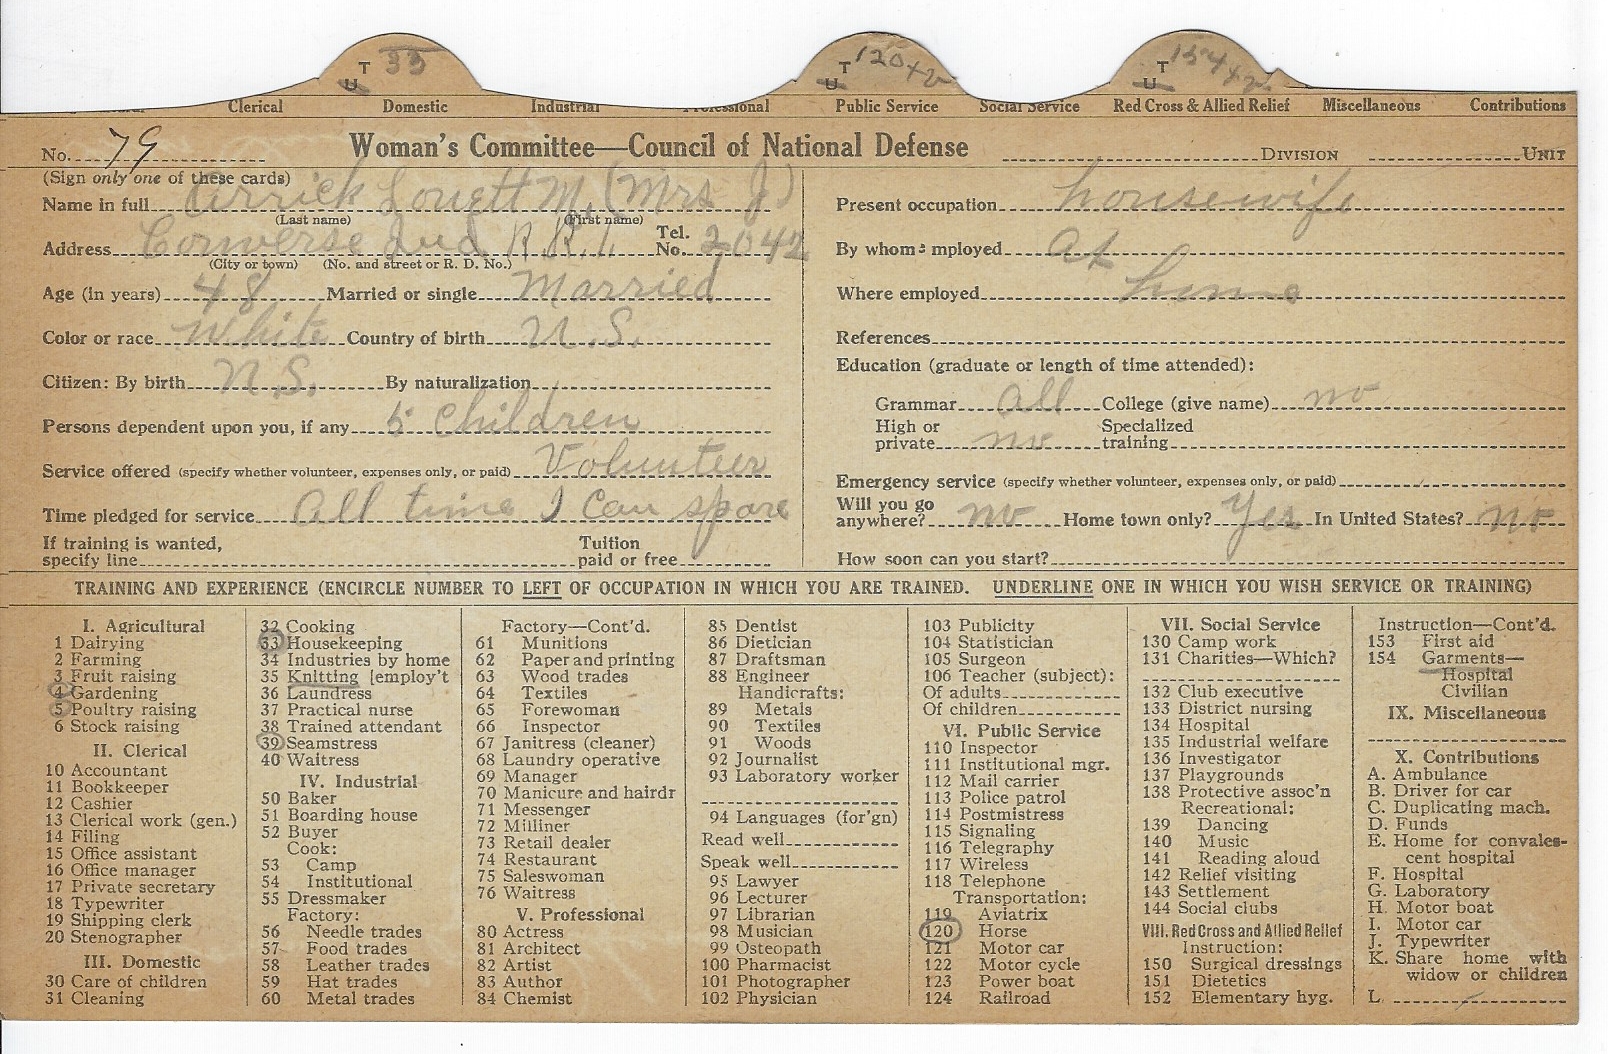 T 33 T 120 + 2 T 154 + 2
U U U
Clerical Domestic Industrial Professional Public Service Social Service Red Cross & Allied Relief Miscellaneous Contributions
No. 79 Woman's Committee—Council of National Defense DIVISION UNIT
(Sign only one of these cards)
Name in full M. (Mrs J)
(Last name) (First name)
Address Converse Ind R.R.1. Tel. No. 2042
(City or town) (No. and street or R. D. No.)
Age (in years) 48 Married or single Married
Color or race White Country of birth U.S.
Citizen: By birth U.S. By naturalization
Persons dependent upon you, if any 5 Children
Service offered (specify whether volunteer, expenses only, or paid) Volunteer
Time pledged for service All time I Can spare
If training is wanted, specify line Tuition paid or free
Present occupation housewife
By whom employed at
Where employed home
References
Education (graduate or length of time attended):
Grammar all College (give name) no
High or private no Specialized training
Emergency service (specify whether volunteer, expenses only, or paid)
Will you go anywhere? no Home town only? Yes In United States? no
How soon can you start?
TRAINING AND EXPERIENCE (ENCIRCLE NUMBER TO LEFT OF OCCUPATION IN WHICH YOU ARE TRAINED. UNDERLINE ONE IN WHICH YOU WISH SERVICE OR TRAINING)
I. Agricultural
1 Dairying
2 Farming
3 Fruit raising
4 Gardening
5 Poultry raising
6 Stock raising
II. Clerical
10 Accountant
11 Bookkeeper
12 Cashier
13 Clerical work (gen.)
14 Filing
15 Office assistant
16 Office manager
17 Private secretary
18 Typewriter
19 Shipping clerk
20 Stenographer
III. Domestic
30 Care of children
31 Cleaning
32 Cooking
33 Housekeeping
34 Industries by home
35 Knitting [employ't
36 Laundress
37 Practical nurse
38 Trained attendant
39 Seamstress
40 Waitress
IV. Industrial
50 Baker
51 Boarding house
52 Buyer
Cook:
53 Camp
54 Institutional
55 Dressmaker
Factory:
56 Needle trades
57 Food trades
58 Leather trades
59 Hat trades
60 Metal trades
Factory—Cont'd.
61 Munitions
62 Paper and printing
63 Wood trades
64 Textiles
65 Forewoman
66 Inspector
67 Janitress (cleaner)
68 Laundry operative
69 Manager
70 Manicure and hairdr
71 Messenger
72 Milliner
73 Retail dealer
74 Restaurant
75 Saleswoman
76 Waitress
V. Professional
80 Actress
81 Architect
82 Artist
83 Author
84 Chemist
85 Dentist
86 Dietician
87 Draftsman
88 Engineer
Handicrafts:
89 Metals
90 Textiles
91 Woods
92 Journalist
93 Laboratory worker
94 Languages (for'gn)
Read well
Speak well
95 Lawyer
96 Lecturer
97 Librarian
98 Musician
99 Osteopath
100 Pharmacist
101 Photographer
102 Physician
103 Publicity
104 Statistician
105 Surgeon
106 Teacher (subject):
Of adults
Of children
VI. Public Service
110 Inspector
111 Institutional mgr.
112 Mail carrier
113 Police patrol
114 Postmistress
115 Signaling
116 Telegraphy
117 Wireless
118 Telephone
Transportation:
119 Aviatrix
120 Horse
121 Motor car
122 Motor cycle
123 Power boat
124 Railroad
VII. Social Service
130 Camp work
131 Charities—Which?
132 Club executive
133 District nursing
134 Hospital
135 Industrial welfare
136 Investigator
137 Playgrounds
138 Protective assoc'n
Recreational:
139 Dancing
140 Music
141 Reading aloud
142 Relief visiting
143 Settlement
144 Social clubs
VIII. Red Cross and Allied Relief
Instruction:
150 Surgical dressings
151 Dietetics
152 Elementary hyg.
Instruction—Cont'd.
153 First aid
154 Garments—
Hospital
Civilian
IX. Miscellaneous
X. Contributions
A. Ambulance
B. Driver for car
C. Duplicating mach.
D. Funds
E. Home for convales-
cent hospital
F. Hospital
G. Laboratory
H. Motor boat
I. Motor car
J. Typewriter
K. Share home with
widow or children
L.